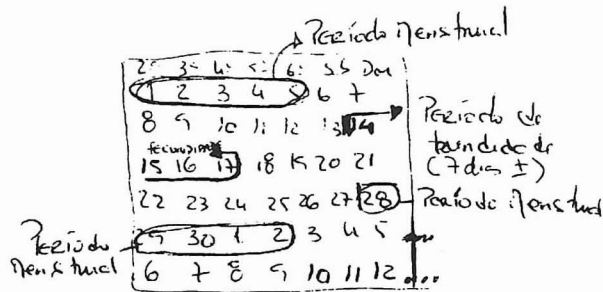 Período Menstrual
2ª 3ª 4ª 5ª 6ª Sáb Dom
1 2 3 4 5 6 7
8 9 10 11 12 13 14
Período de
(7 dias ±)
15 16 17 18 19 20 21
22 23 24 25 26 27 28
Período Menstrual
Período
Menstrual
9 30 1 2 3 4 5
6 7 8 9 10 11 12